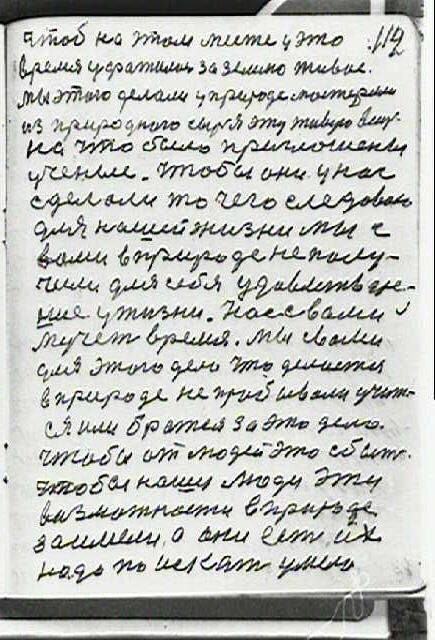 чтоб на этом месте у это 112
время ухватилось за землю живое.
мы этого делали у природе мостерами
из природного сырья эту живую
на что были приглошены
ученые. чтобы они у нас
сделали то чего следовало
для нашей жизни мы с
вами в природе не полу-
чили для себя удовлетворе-
ние у жизни. Нас с вами
мучет время. мы с вами
для этого дело что делается
в природе не пробывали учит-
ся или братся за это дело.
чтобы от людей это
чтобы наши люди эту
возможность в природе
заимели, а они есть их
надо поискать умело